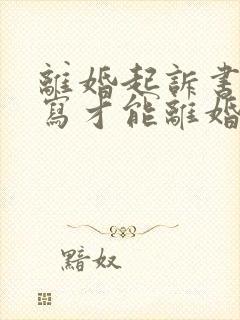 離婚起訴書
寫才能離婚
黯奴